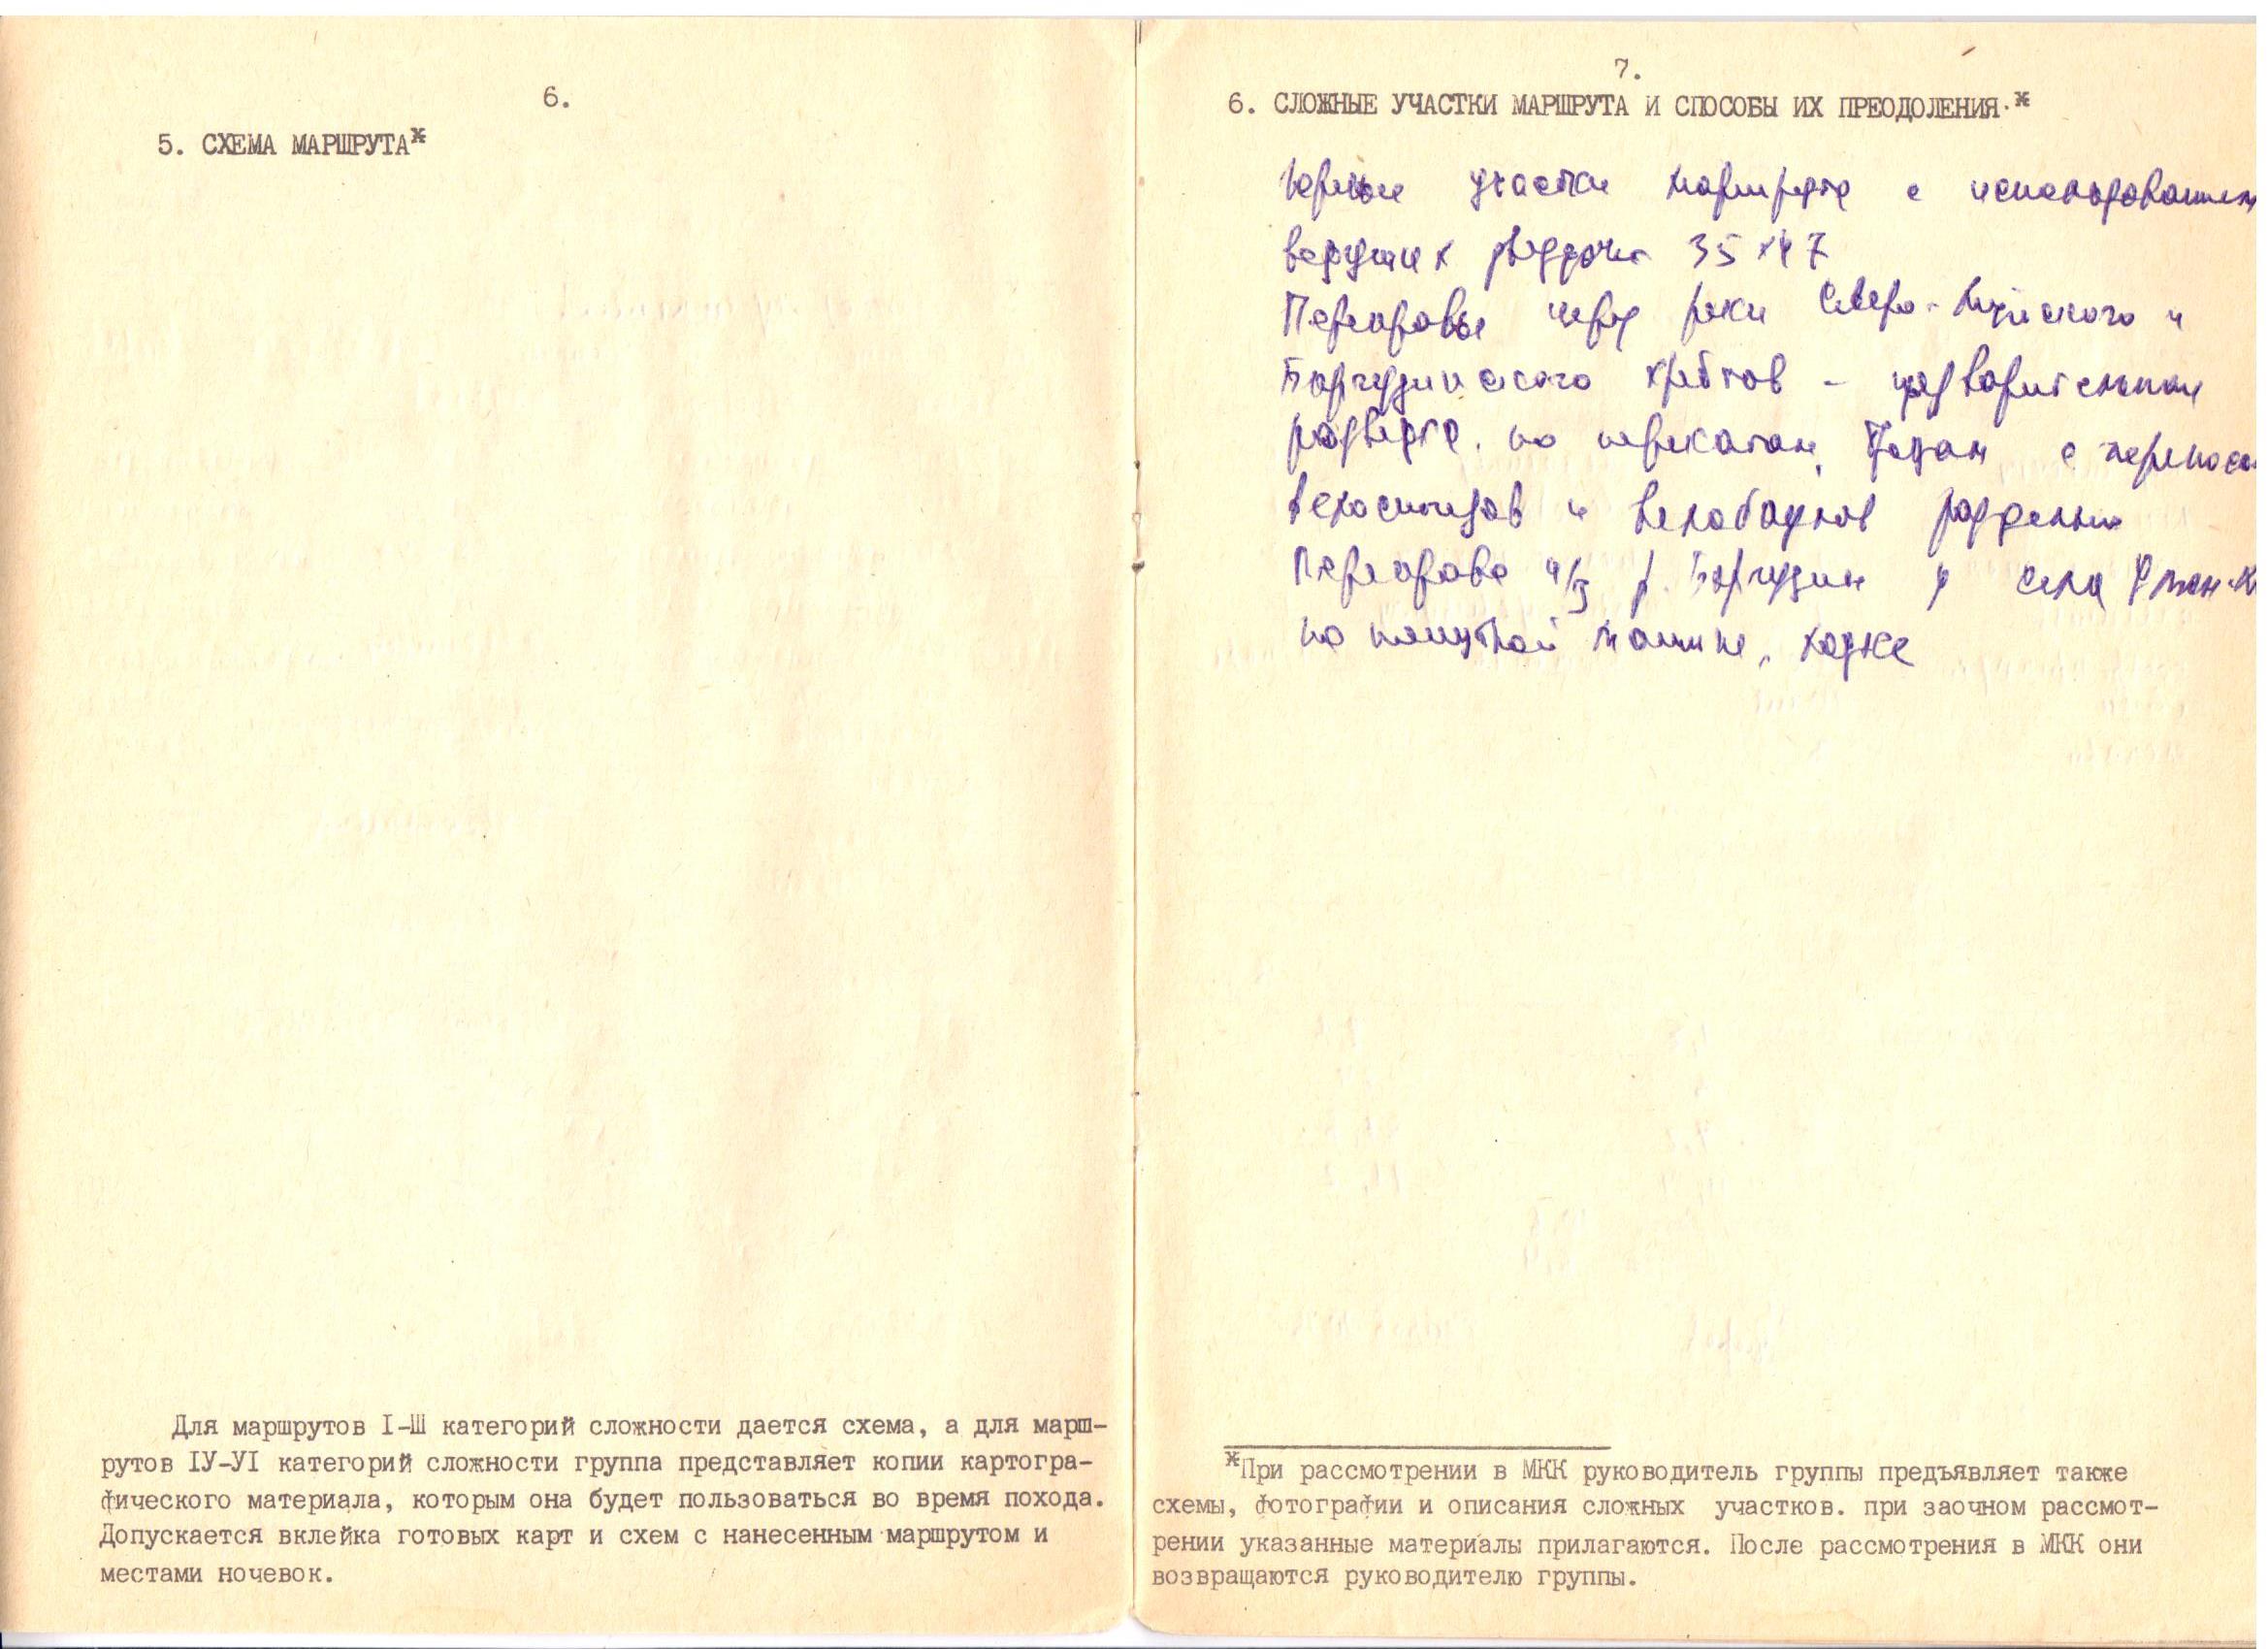 6.
5. СХЕМА МАРШРУТА*
Для маршрутов I-Ш категорий сложности дается схема, а для марш-
рутов IУ-УI категорий сложности группа представляет копии картогра-
фического материала, которым она будет пользоваться во время похода.
Допускается вклейка готовых карт и схем с нанесенным маршрутом и
местами ночевок.
7.
6. СЛОЖНЫЕ УЧАСТКИ МАРШРУТА И СПОСОБЫ ИХ ПРЕОДОЛЕНИЯ.*
Горные участки маршрута с использованием
ведущих 35х47
Переправы через реки Северо-Муйского и
Баргузинского хребтов – предварительная
разведка, по перекатам, бродам с переносом
велосипедов и велобаулов раздельно
Переправа ч/з р. Баргузин у села
на попутной машине, лодке
*При рассмотрении в МКК руководитель группы предъявляет также
схемы, фотографии и описания сложных участков. при заочном рассмот-
рении указанные материалы прилагаются. После рассмотрения в МКК они
возвращаются руководителю группы.